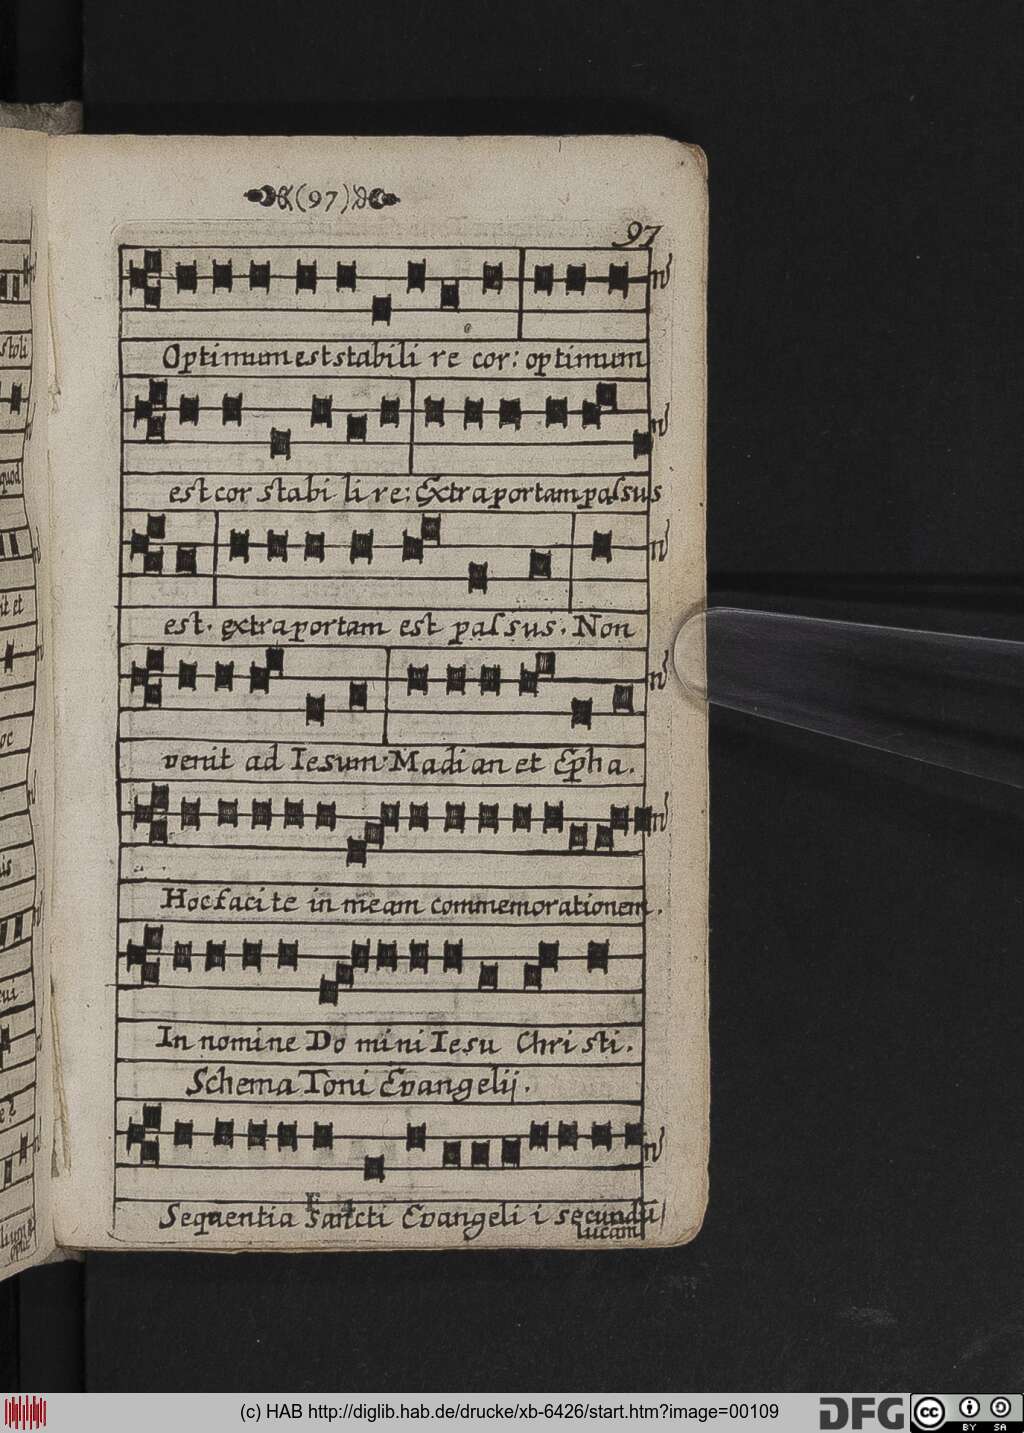 (97)
97
Optimum est stabili re cor: optimum
est cor stabi li re: Extra portam paſsus
est. extra portam est paſsus. Non
venit ad Iesum. Madi an et Epha.
Hoc faci te in meam commemorationem.
In nomine Do mini Iesu Chri sti.
Schema Toni Evangelij.
Sequentia Sancti Evangeli i secundū
lucam
F 4
stoli
quod
it et
oc
(c) HAB http://diglib.hab.de/drucke/xb-6426/start.htm?image=00109
DFG
cc
BY SA